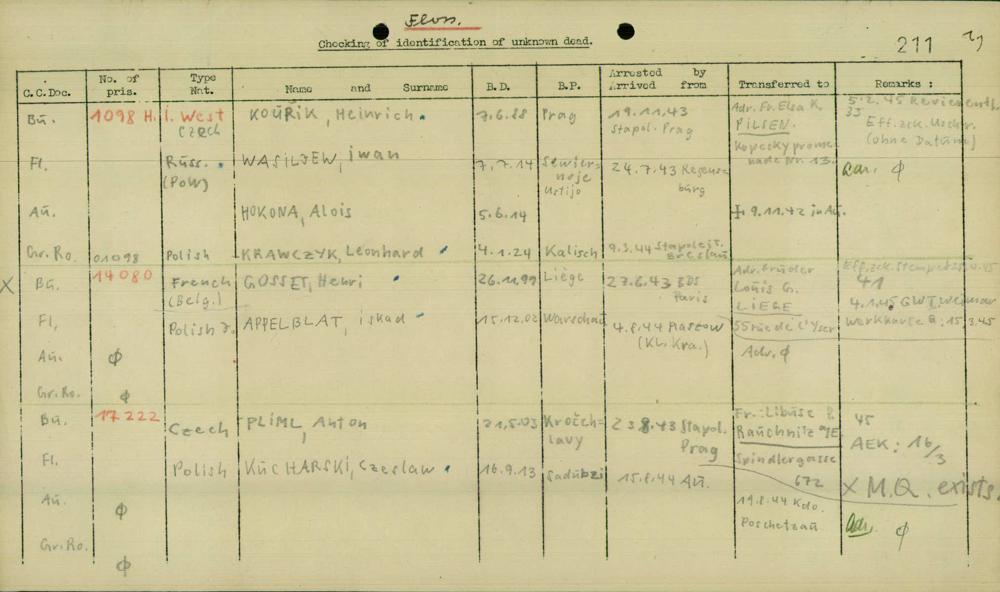 Floss.
Checking of identification of unknown dead.
211
C.C.Doc. No. of pris. Type Nat. Name and Surname B.D. B.P. Arrested by Arrived from Transferred to Remarks :
Bu. 1098 H. I. West Czech KOUŘIK, Heinrich. 7.6.88 Prag 19.11.43 Stapol. Prag Adr. Fr. Elsa K. PILSEN. Kopecky promenade Nr. 13. 5.2.45 Eff.zck. (ohne Datum)
Fl. Russ. (POW) WASILJEW, iwan 7.7.14 Sewiernoje Ustijo 24.7.43 Regensburg Car. φ
Au. HOKONA, Alois 5.6.14 + 9.11.42 in Au.
Gr.Ro. 01098 Polish KRAWCZYK, Leonhard 4.1.24 Kalisch 9.3.44 Breslau
X Bu. 14080 French (Belg.) GOSSET, Henri 26.11.99 Liège 27.6.43 BDS Paris Adr. Bruder Louis G. LIEGE 55 rue de l'Yser Eff.zck. 41 4.1.45 GWI Weimar Werkkarte B: 15.3.45
Fl. Polish J. APPELBLAT, iskad 15.12.02 Warschau 4.8.44 Plaszow (KL. Kra.) Adr. φ
Au. φ
Gr.Ro. φ
Bu. 17222 Czech PLIML, Anton 21.5.03 Kročehlavy 23.8.43 Stapol. Prag Fr.: Libuse P. Rauchnitz a/E. Spindlergasse 672 45 AEK: 16/3
X M.Q. exists.
Fl. Polish KUCHARSKI, Czeslaw 16.9.13 Sadubzi 15.8.44 Au. 19.8.44 Kdo. Poschetzau Adr. φ
Au. φ
Gr.Ro. φ